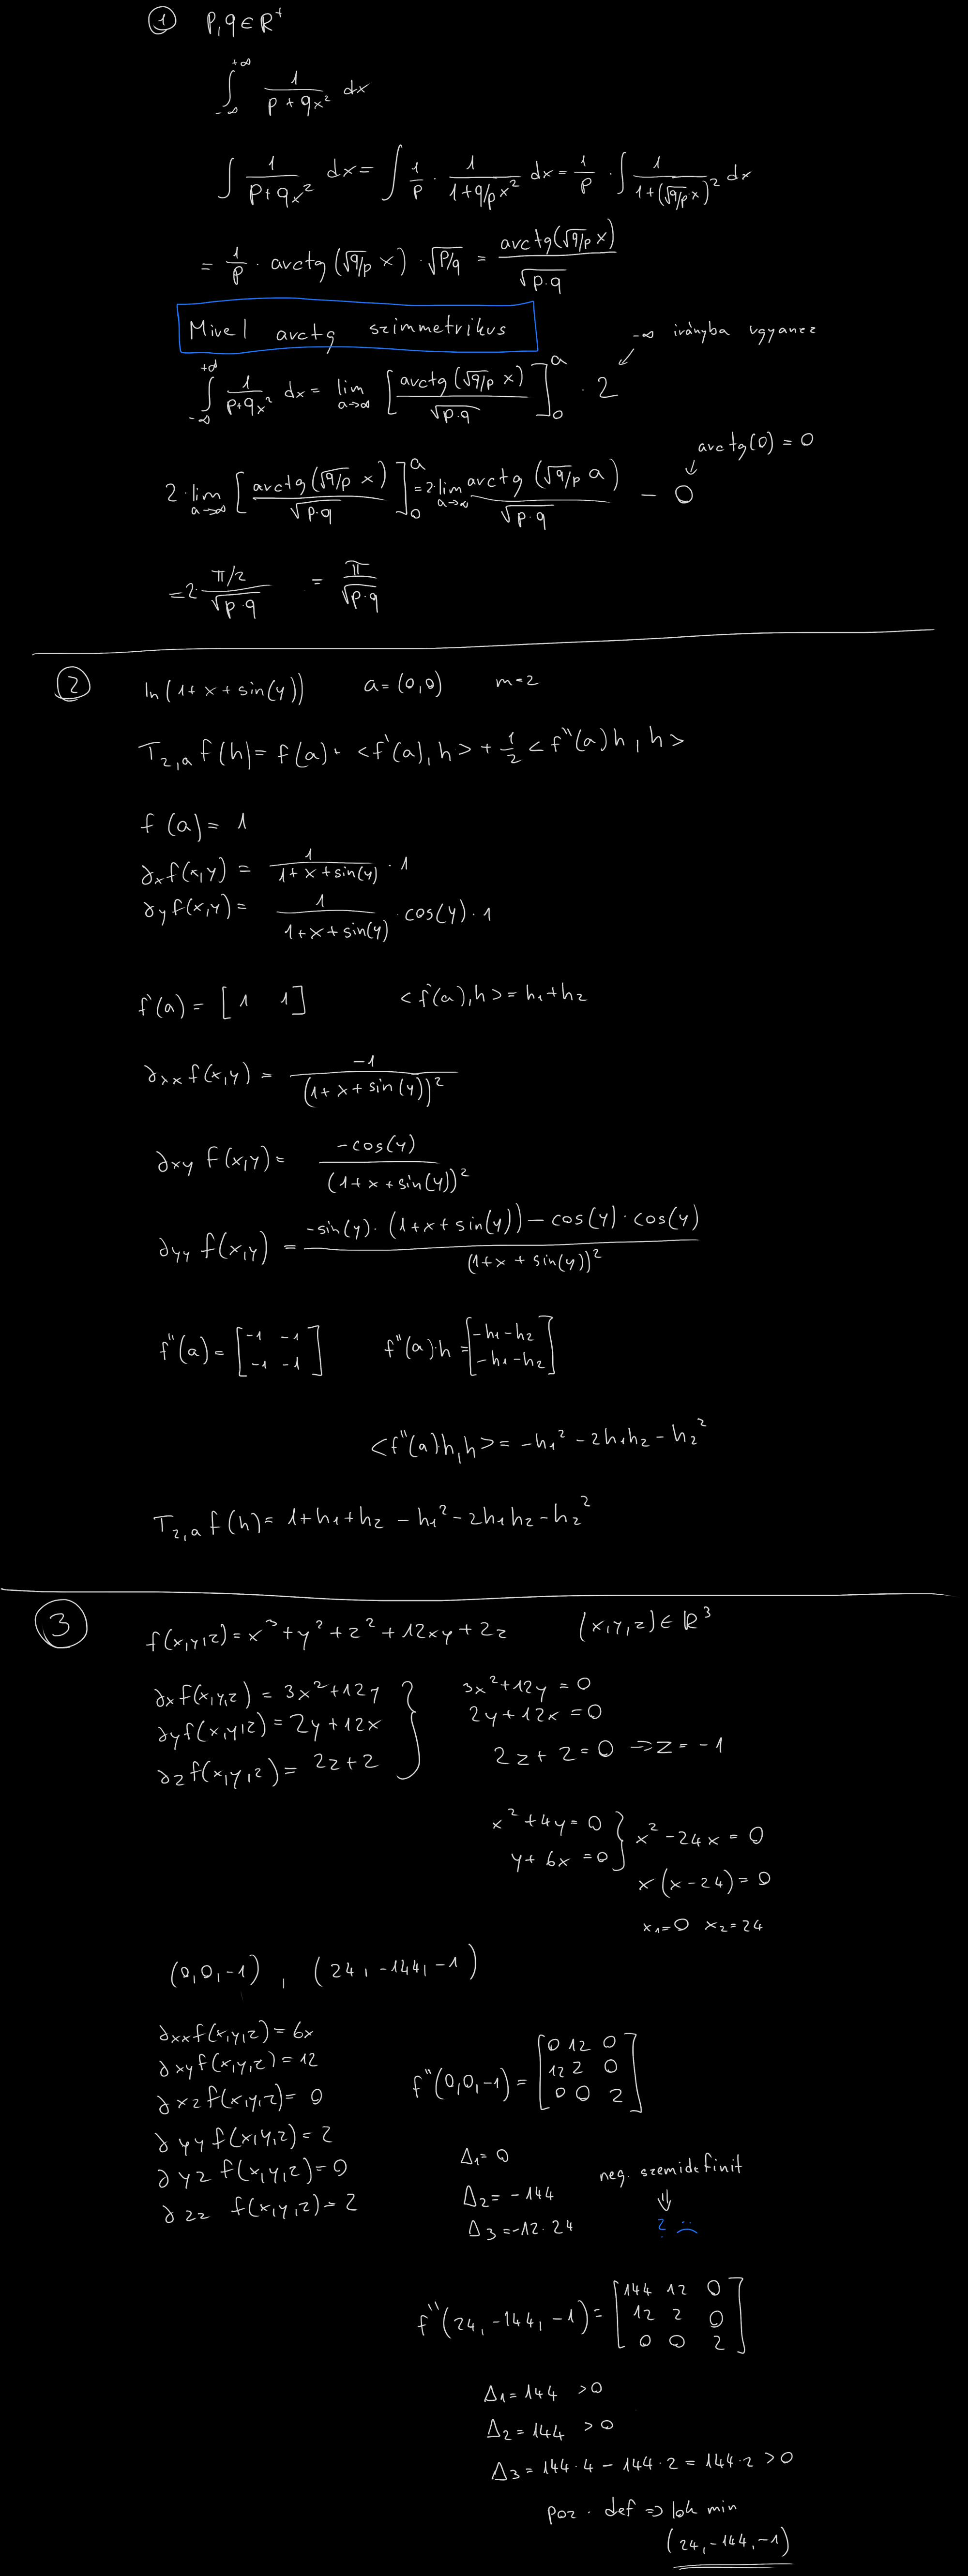 ① p,q ∈ R⁺
∫_{-∞}^{+∞} 1/(p+qx²) dx
∫ 1/(p+qx²) dx = ∫ 1/p · 1/(1+q/p x²) dx = 1/p · ∫ 1/(1+(√(q/p) x)²) dx
= 1/p · arctg(√(q/p) x) · √(p/q) = arctg(√(q/p) x)/√(p·q)
Mivel arctg szimmetrikus
-∞ irányba ugyanez
∫_{-∞}^{+∞} 1/(p+qx²) dx = lim_{a→∞} [arctg(√(q/p) x)/√(p·q)]_0^a · 2
arctg(0) = 0
2·lim_{a→∞} [arctg(√(q/p) x)/√(p·q)]_0^a = 2·lim_{a→∞} arctg(√(q/p) a)/√(p·q) - 0
= 2·(π/2)/√(p·q) = π/√(p·q)
② ln(1+x+sin(y)) a=(0,0) m=2
T_{2,a} f(h) = f(a) + <f'(a),h> + 1/2 <f''(a)h,h>
f(a) = 1
∂x f(x,y) = 1/(1+x+sin(y)) · 1
∂y f(x,y) = 1/(1+x+sin(y)) · cos(y) · 1
f'(a) = [1 1] <f'(a),h> = h₁+h₂
∂xx f(x,y) = -1/(1+x+sin(y))²
∂xy f(x,y) = -cos(y)/(1+x+sin(y))²
∂yy f(x,y) = (-sin(y)·(1+x+sin(y)) - cos(y)·cos(y))/(1+x+sin(y))²
f''(a) = [-1 -1; -1 -1] f''(a)·h = [-h₁-h₂; -h₁-h₂]
<f''(a)h,h> = -h₁² - 2h₁h₂ - h₂²
T_{2,a} f(h) = 1+h₁+h₂ - h₁² - 2h₁h₂ - h₂²
③ f(x,y,z) = x³+y²+z²+12xy+2z (x,y,z) ∈ R³
∂x f(x,y,z) = 3x²+12y } 3x²+12y = 0
∂y f(x,y,z) = 2y+12x } 2y+12x = 0
∂z f(x,y,z) = 2z+2 } 2z+2=0 → z = -1
x²+4y=0 } x²-24x = 0
y+6x = 0
x(x-24) = 0
x₁=0 x₂=24
(0,0,-1), (24,-144,-1)
∂xx f(x,y,z) = 6x
∂xy f(x,y,z) = 12
∂xz f(x,y,z) = 0
∂yy f(x,y,z) = 2
∂yz f(x,y,z) = 0
∂zz f(x,y,z) = 2
f''(0,0,-1) = [0 12 0; 12 2 0; 0 0 2]
Δ₁ = 0
Δ₂ = -144
Δ₃ = -12·24
neg. szemidefinit
⇓
? :(
f''(24,-144,-1) = [144 12 0; 12 2 0; 0 0 2]
Δ₁ = 144 >0
Δ₂ = 144 >0
Δ₃ = 144·4 - 144·2 = 144·2 >0
poz. def ⇒ lok min
(24,-144,-1)